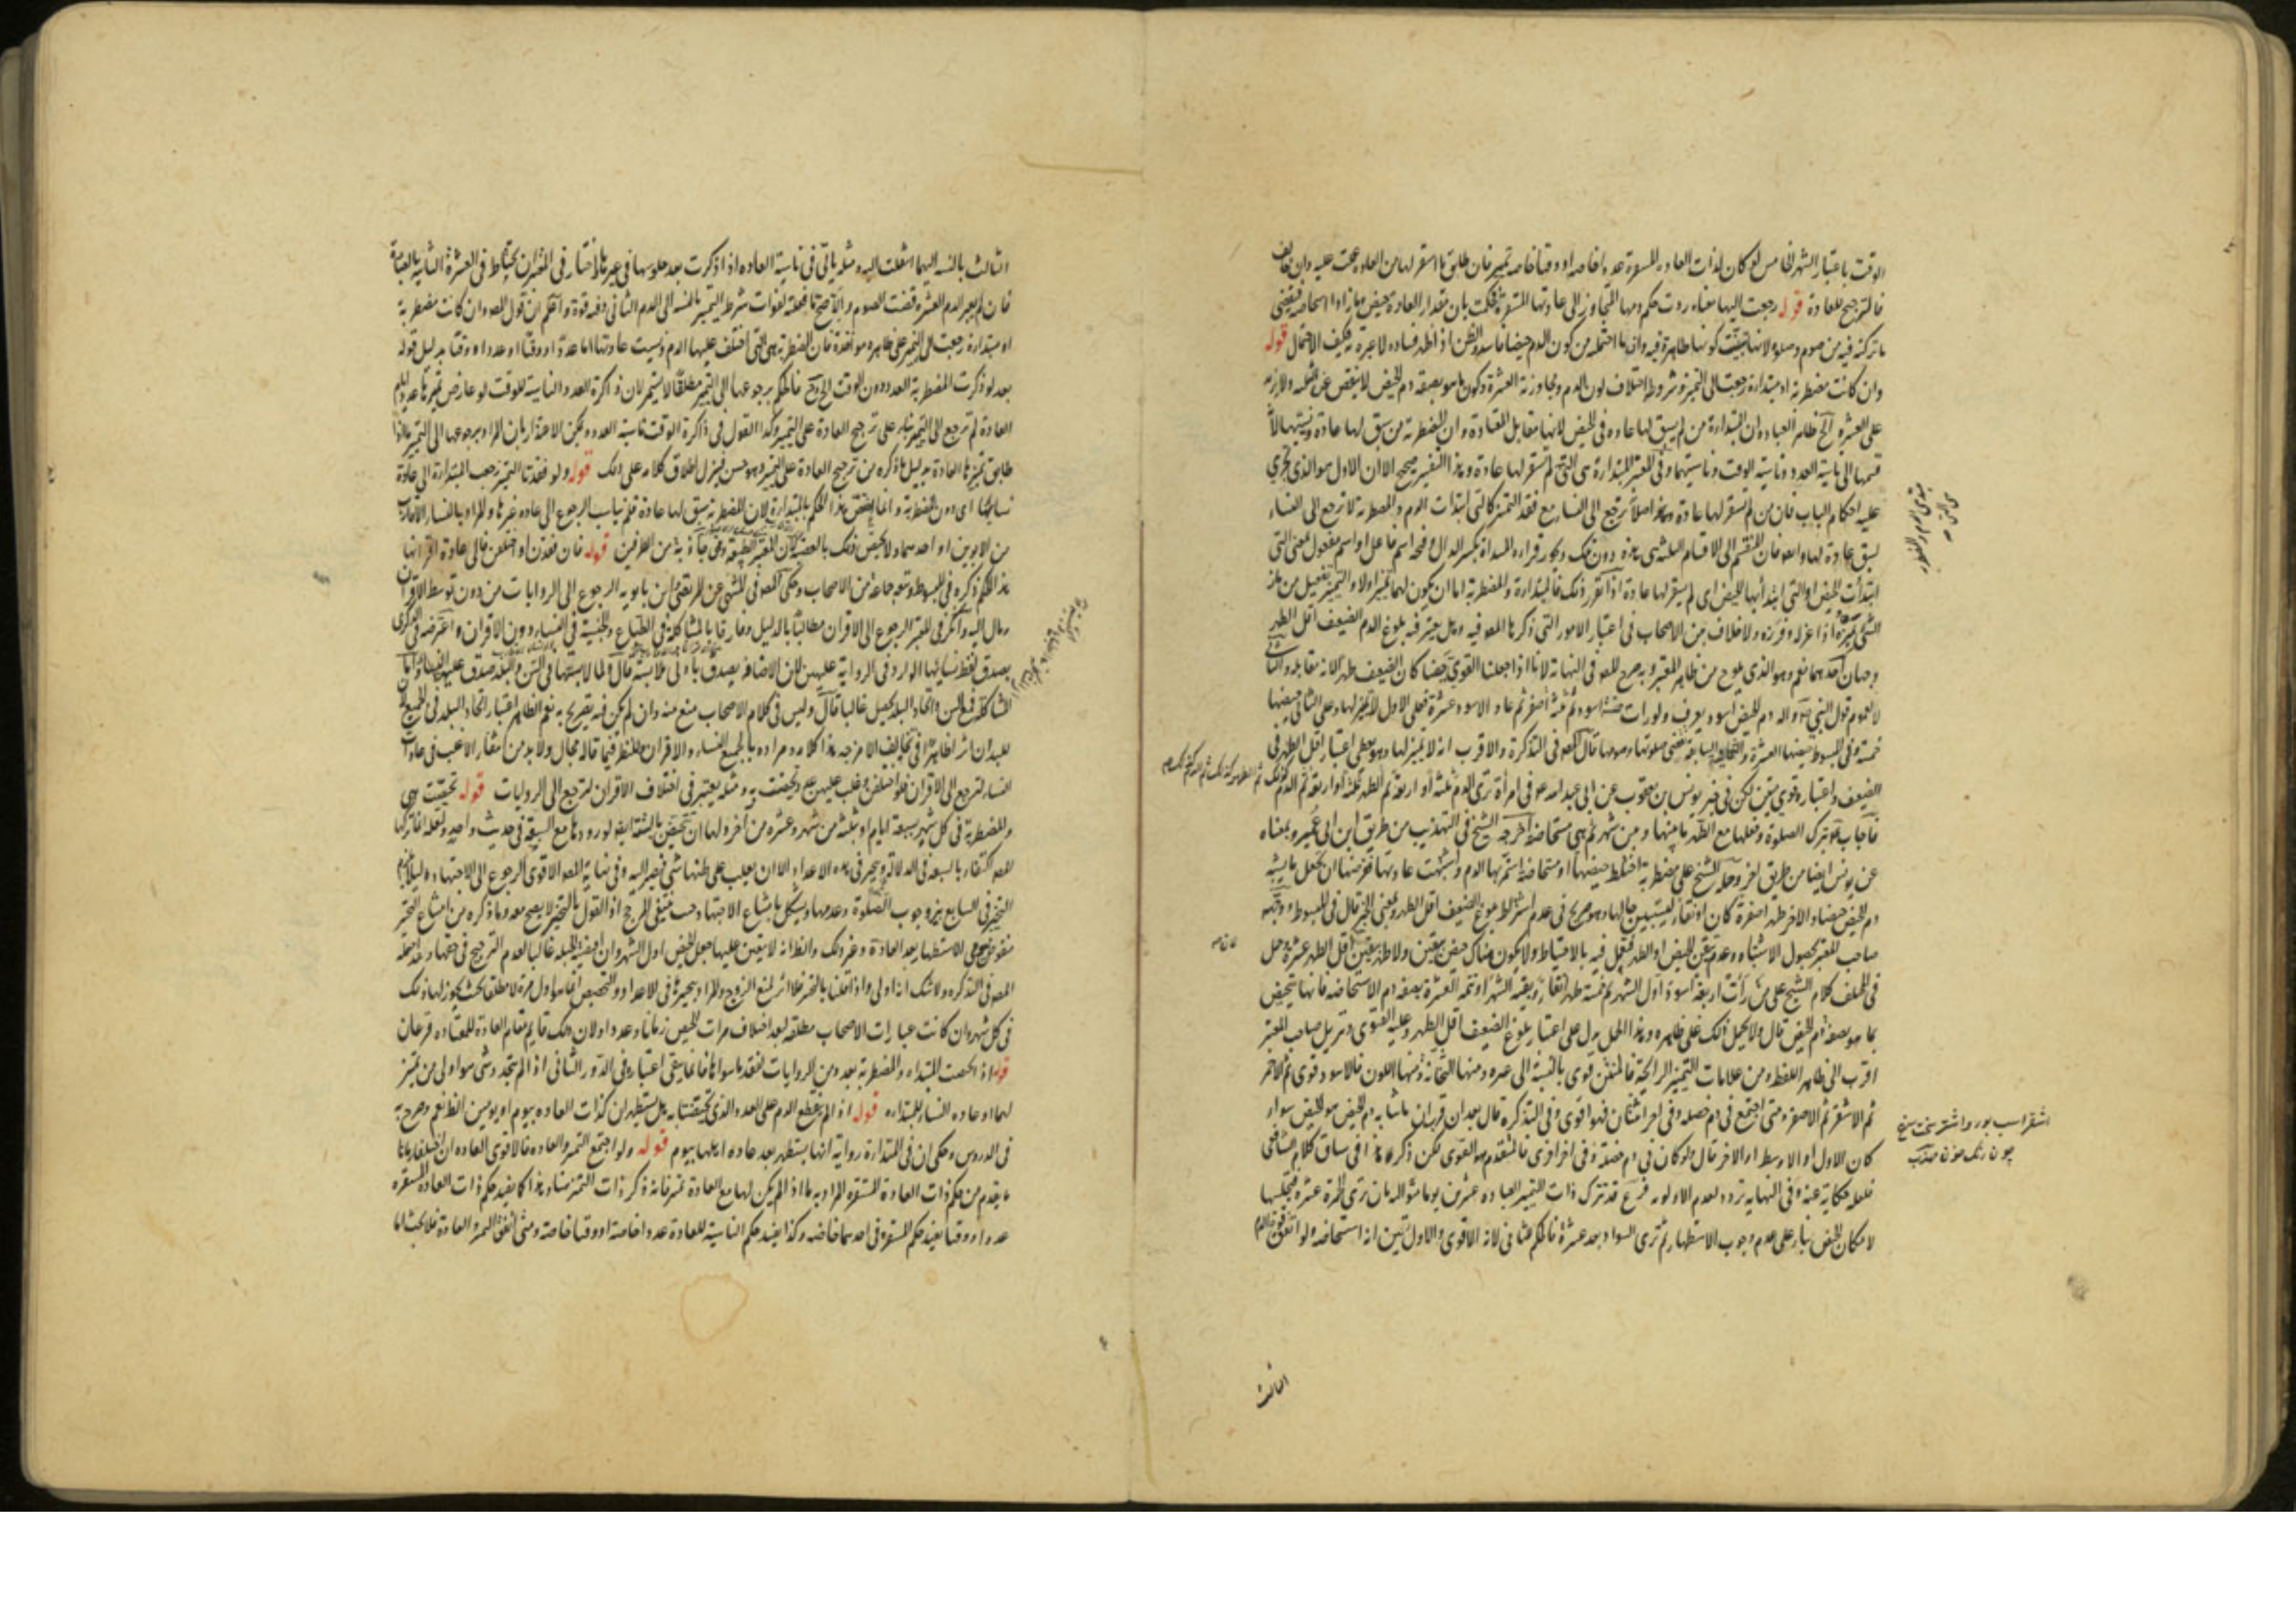 الوقت باعتبار الشهر الخامس لو كان لذات العادة المستقرة عددا خاصه او وقتا خاصه تميز فان طابق ما استقر لها من العادة بحث عليه وان تخالف
فالترجيح للعادة قوله رجعت اليها معناه ردت حكم دمها المتجاوز الى عادتها المستقرة فحكمت بان مقدار العادة حيض وما زاد استحاضه فتقضى
ما تركته فيه من صوم وصلوة لانها كونها طاهرة فيه وان ما احتمله من كون الدم حيضا فاسد والظن اذا ظهر فساده لا عبرة به فكيف الاحتمال قوله
وان كانت مضطربة او مبتدأة رجعت الى التميز وشروطه اختلاف لون الدم ومجاوزته العشرة وكون ما هو بصفة دم الحيض لا ينقص عن ثلثه ولا يزيد
على العشرة الخ ظاهر العبادة ان المبتدأة من لم يسبق لها عادة في الحيض لانها مقابل المعتادة وان المضطربة من سبق لها عادة ونسيتها
قسمها الى ناسية العدد وناسية الوقت وناسيتهما وفى المعتبر المبتدأة هي التي لم تستقر لها عادة وهذا التفسير صحيح الا ان الاول هو الذي تجري
عليه احكام الباب فان من لم تستقر لها عادة اصلا ترجع الى النساء مع فقد التميز كالتي ابتدأت الدم والمضطربة لا ترجع الى النساء
لسبق عادة لها والمنقسم الى الاقسام الثلثة هى هذه دون تلك ويجوز قراءة المبتدأة بكسر الدال وفتحه اسم فاعل او اسم مفعول بمعنى التي
ابتدأت الحيض او التي ابتدأ بها الحيض اى لم يستقر لها عادة اذا تقرر ذلك فالمبتدأة والمضطربة اما ان يكون لهما تميز اولا والتميز تفعيل من ماز
الشئ يميزه اذا عزله وفرزه ولا خلاف بين الاصحاب فى اعتبار الامور التي ذكرها المصنف فيه وهل يعتبر فيه بلوغ الدم الضعيف اقل الطهر
وجهان احدهما نعم وهو الذي يلوح من ظاهر المعتبر وبه صرح المص فى النهاية لانا اذا جعلنا القوى حيضا كان الضعيف طهرا لانه مقابله والثانى
لا لعموم قول النبي ص واله دم الحيض اسود يعرف ولو رأت خمسة اسود ثم تسعة اصفر ثم عاد الاسود عشرة فعلى الاول لا تميز لها وعلى الثاني حيضها
خمسة وفى المبسوط حيضها العشرة السابقة تقضى صلوتها وصومها قال المص فى التذكرة والاقرب انه لا تميز لها وهو يعطى اعتبار اقل الطهر في
الضعيف واعتباره قوى متين لكن في خبر يونس بن يعقوب عن ابى عبد الله ع م فى امرأة ترى الدم ثلثة او اربعة ثم الطهر ثلثة او اربعة ثم الدم كذلك
فاجاب ع بترك الصلوة وفعلها مع الطهر ما بينها وبين شهر ثم هي مستحاضة اخرجه الشيخ فى التهذيب من طريق ابن ابى عمير وبمعناه
عن يونس ايضا من طريق اخر وحمله الشيخ على مضطربة اختلط حيضها او مستحاضة استمر بها الدم واشتبهت عادتها ففرضها ان تجعل ما يشبه
دم الحيض حيضا والاخر طهرا صفرة كان او نقاء ليستبين حالها وهو صريح فى عدم اشتراط بلوغ الضعيف اقل الطهر وبمعنى الخبر قال فى المبسوط ووجهه
صاحب المعتبر بحصول الاشتباه وعدم تيقن الحيض او الطهر فتعمل فيه بالاحتياط ولا يكون هناك حيض بيقين ولا طهر بيقين اذ اقل الطهر عشرة وحمل
فى المختلف كلام الشيخ على من رأت اربعة اسود اول الشهر ثم خمسة طهر انقاء وبقية الشهر او تتمة العشرة بصفة دم الاستحاضة فانها تتحيض
بما هو بصفة دم الحيض قال ولا يحمل ذلك على ظاهره وهذا الحمل يدل على اعتبار بلوغ الضعيف اقل الطهر وعليه الفتوى وتنزيل صاحب المعتبر
اقرب الى ظاهر اللفظ ومن علامات التميز الرائحة فالمنتن قوى بالنسبة الى غيره ومنها الثخانة ومنها اللون فالاسود قوى ثم الاحمر
ثم الاشقر ثم الاصفر ومتى اجتمع فى دم خصلة وفى اخر اثنتان فهو اقوى وفى التذكرة قال بعد ان قرر ان ما شابه دم الحيض هو الحيض سواء
كان الاول او الاوسط او الاخر قال ولو كان فى دم خصلة وفى اخر اخرى فالمتقدم هو القوى لكن ذكر هذا فى سياق كلام الشافعى
فلعله حكاية عنه وفى النهاية تردد لعدم الاولوية فرع قد تترك ذات التميز العبادة عشرين يوما مثاله بان ترى الحمرة عشرة فتجلسها
لامكان الحيض بناء على عدم وجوب الاستظهار ثم ترى السواد بعد عشرة فالحكم للثاني لانه الاقوى والاول تبين انه استحاضه ولو اتفق
الثالث
اشقر اسب بور و اشقر سخت سرخ
چون رنگ خون
الثالث بالنسبة اليهما انتقلت اليه ومثله ياتى فى ناسية العادة اذا ذكرت بعد جلوسها فى غيرها
فان لم يعبر الدم العشرة قضت الصوم والاصح ما قلته لفوات شرط التميز بالنسبة الى الدم الثانى وفيه قوة واعلم ان قول المص وان كانت مضطربة
او مبتدأة رجعت الى التميز على ظاهره مواخذة فان المضطربة هى التي اختلف عليها الدم ونسيت عادتها اما عددا او وقتا او عددا ووقتا بدليل قوله
بعد لو ذكرت المضطربة العدد دون الوقت الخ وح فالحكم برجوعها الى التميز مطلقا لا يستمر لان ذاكرة العدد الناسية للوقت لو عارض تميزها عدد ايام
العادة لم ترجع الى التميز بناء على ترجيح العادة على التميز وكذا القول فى ذاكرة الوقت ناسية العدد ويمكن الاعتذار بان المراد برجوعها الى التميز ما اذا
طابق تميزها العادة بدليل ما ذكره من ترجيح العادة على التميز وهو حسن فينزل اطلاق كلامه على ذلك قوله ولو فقدتا التميز رجعت المبتدأة الى عادة
نسائها اى دون المضطربة وانما اختص هذا الحكم بالمبتدأة لان المضطربة سبق لها عادة فلم يناسب الرجوع الى عادة غيرها والمراد بالنساء الاقارب
من الابوين او احدهما ولا يختص ذلك بالعصبة لان المعتبر الطبيعة وهى جاذبة من الطرفين قوله فان فقدن او اختلفن فالى عادة اقرانها
هذا الحكم ذكره فى المبسوط وتبعه جماعة من الاصحاب وحكى المص فى المنتهى عن المرتضى وابن بابويه الرجوع الى الروايات من دون توسط الاقران
ومال اليه وانكر فى المعتبر الرجوع الى الاقران مطالبا بالدليل وفارقا بالمشاكلة فى الطباع والجنسية فى النساء دون الاقران واعترضه فى الذكرى
بصدق لفظ نسائها الوارد فى الرواية عليهن فان الاضافة يصدق بادنى ملابسة قال ولما لابستها فى السن والبلد صدق عليهن النساء واما
المشاكلة فمع السن واتحاد البلد يحصل غالبا قال وليس فى كلام الاصحاب منع منه وان لم يكن فيه تصريح به نعم الظاهر اعتبار اتحاد البلد فى الجميع لان
للبلدان اثرا ظاهرا فى تخالف الامزجة هذا كلامه ومراده بالجميع النساء والاقران وللنظر فيما قاله مجال ولا بد من اعتبار الاغلب فى عادات
النساء لترجع الى الاقران فلو اختلفن وغلب عليهن عدد تحيضت به ومثله يعتبر فى اختلاف الاقران لترجع الى الروايات قوله تحيضت هى
والمضطربة فى كل شهر بسبعة ايام او بثلثة من شهر وعشرة من اخر ولهما ان تتحيض بالستة ايضا لورودها مع السبعة فى حديث واحد ولعله انما تركها
المص اكتفاء بالسبعة فى الدلالة وتتخير فى هذه الاعداد الا ان يغلب على ظنها شئ فتصير اليه وفى نهاية المص الاقوى الرجوع الى الاجتهاد لئلا يلزم
التخيير فى السابع بين وجوب الصلوة وعدمها ويشكل بامتناع الاجتهاد حيث ينتفى المرجح اذ القول بالتخيير لا يصح معه وما ذكره من امتناع التخيير
منقوض بيومى الاستظهار بعد العادة وغير ذلك والظاهر انه لا يتعين عليها جعل الحيض اول الشهر
المص فى التذكرة ولا شك انه اولى واذا قلنا بالتخير فلا اثر لمنع الزوج والمراد بتخيرها فى الاعداد والتخصيص انما هو اول مرة لا مطلقا بحيث يجوز لها ذلك
فى كل شهر وان كانت عبارات الاصحاب مطلقه لبعد اختلاف مرات الحيض زمانا وعددا ولان ذلك قايم مقام العادة للمعتادة فرعان
قوله اذا تحيضت المبتدأة والمضطربة بعدد من الروايات لفقد ما سواها فانما يبقى اعتباره فى الدور الثانى اذا لم يتجدد شئ هو اولى من تميز
لهما او عادة النساء للمبتدأة قوله اذا لم ينقطع الدم على العدد الذى تحيضتا به هل يستظهران كذات العادة بيوم او يومين الظاهر نعم وصرح به
فى الدروس وحكى ان فى المبتدأة رواية انها تستظهر بعد عادة اهلها بيوم قوله ولو اجتمع التميز والعادة فالاقوى العادة ان اختلفا زمانا
ما تقدم من حكم ذات العادة المستقرة المراد به ما اذا لم يكن لها مع العادة تميز فانه ذكر ذات التميز هنا وهذا كما يفيد حكم ذات العادة المستقرة
عددا ووقتا يفيد حكم المستقرة فى احدهما خاصة وكذا يفيد حكم الناسية للعادة عددا خاصة او وقتا خاصة ومتى اتفق التميز والعادة فلا بحث اما